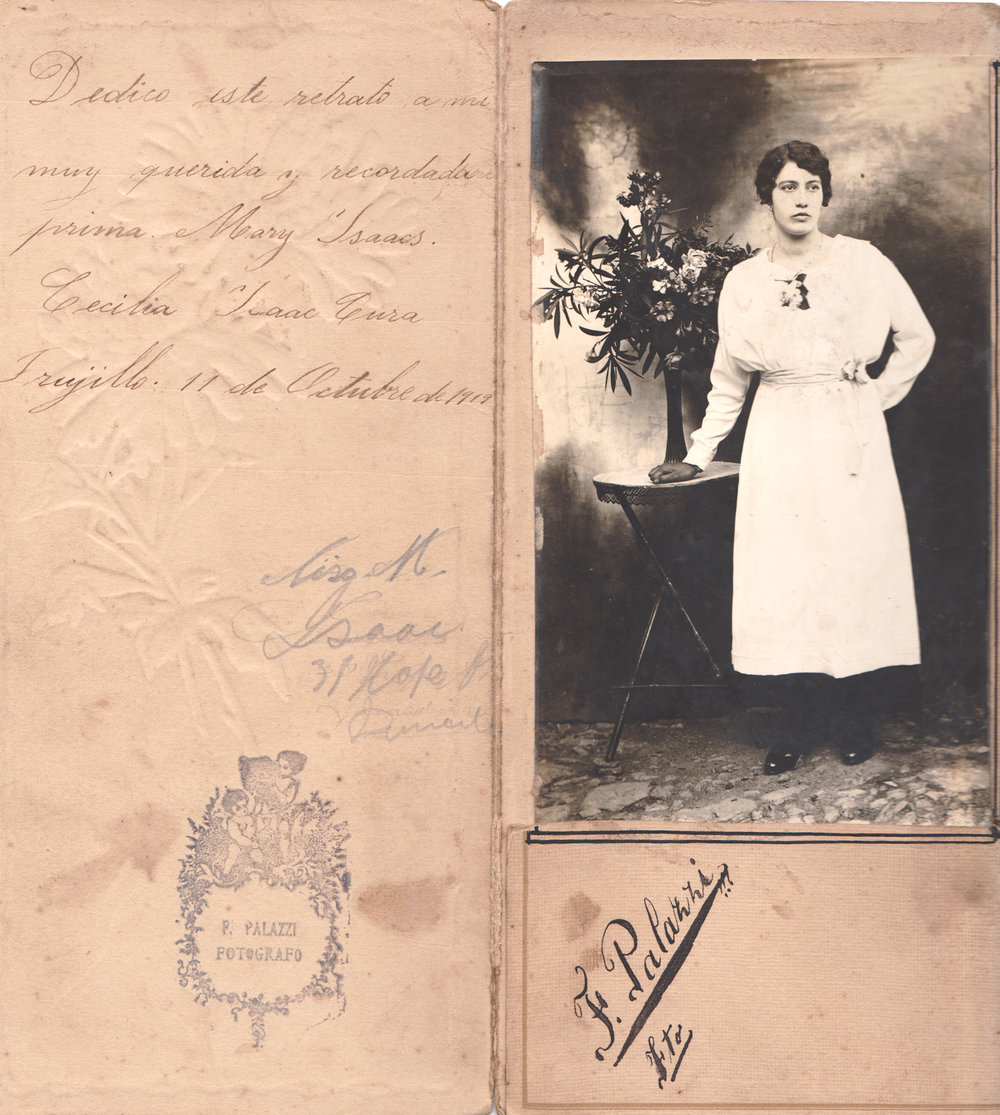 Dedico este retrato a mi
muy querida y recordada
prima. Mary Isaacs.
Cecilia Isaac Cura
Trujillo. 11 de Octubre de 1919
M.
Isaac
31 Hope
F. PALAZZI
FOTOGRAFO
F. Palazzi
Fto